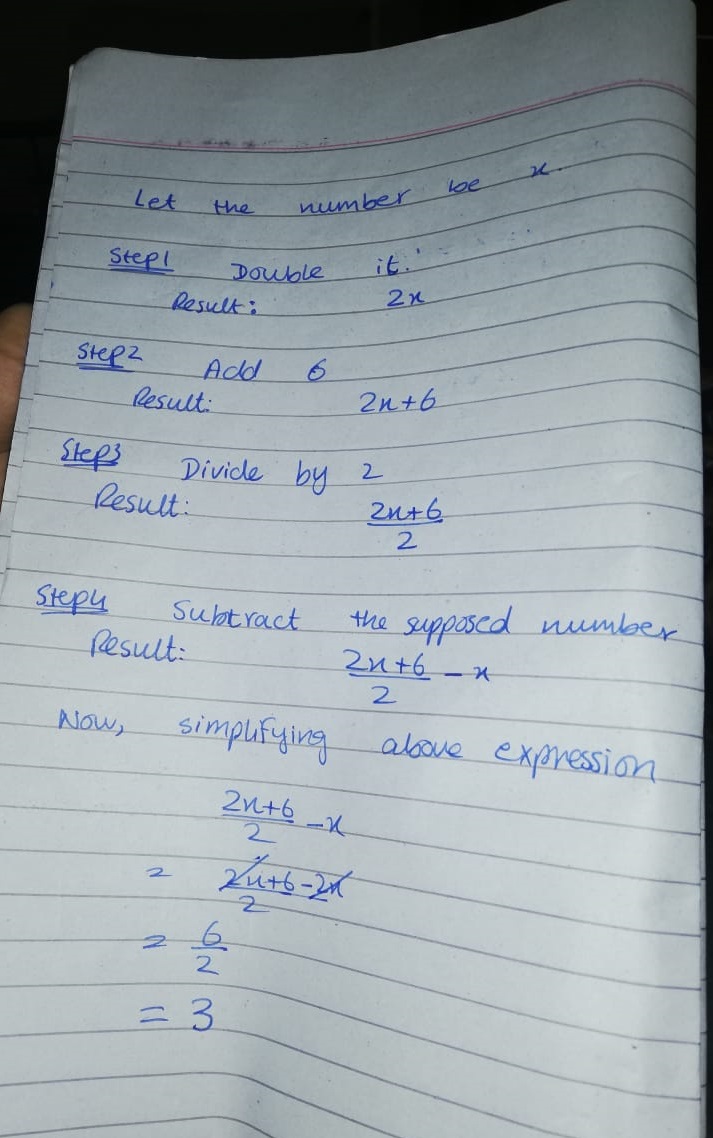 Let the number be x.
Step1 Double it.
Result: 2x
Step2 Add 6
Result: 2x+6
Step3 Divide by 2
Result: 2x+6
2
Step4 Subtract the supposed number
Result: 2x+6 - x
2
Now, simplifying above expression
2x+6 - x
2
= 2x+6-2x
2
= 6
2
= 3